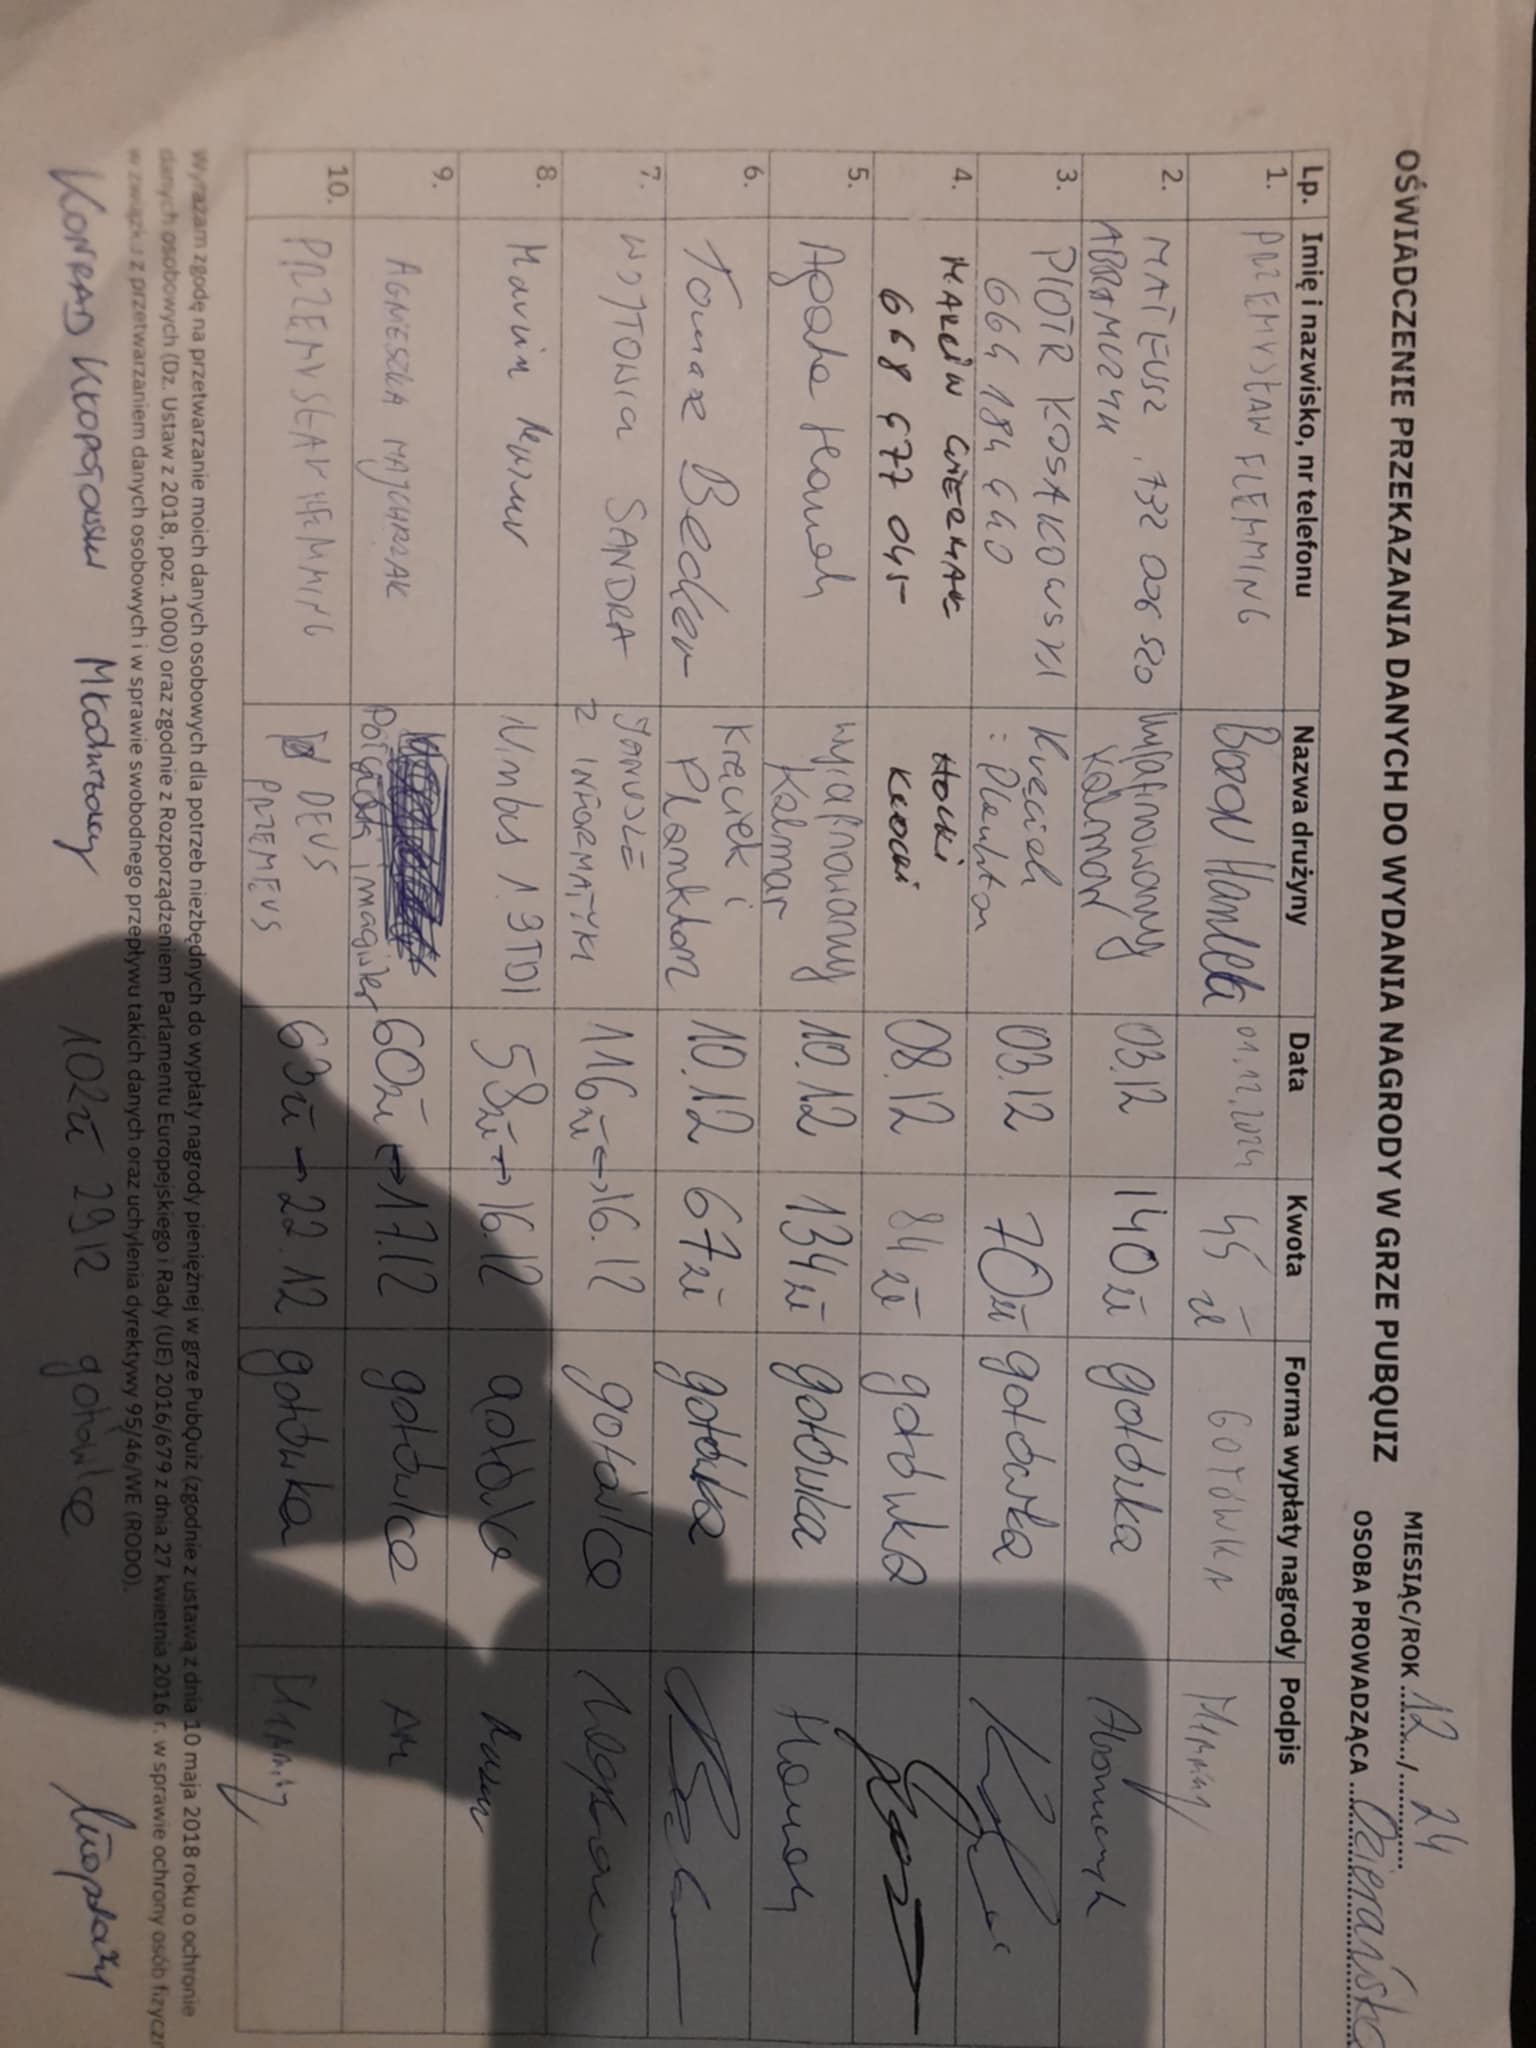 OŚWIADCZENIE PRZEKAZANIA DANYCH DO WYDANIA NAGRODY W GRZE PUBQUIZ
MIESIĄC/ROK 12 / 24
OSOBA PROWADZĄCA
Lp. Imię i nazwisko, nr telefonu Nazwa drużyny Data Kwota Forma wypłaty nagrody Podpis
1. PRZEMYSŁAW FLEMMING 01.12.2024 45 zł GOTÓWKA
2. MATEUSZ 732 006 520 Wyrafinowany 03.12 140 zł gotówka
ABRAMCZYK Kalmar
3. PIOTR KOSAKOWSKI Kręciek 03.12 70 zł gotówka
664 184 440 i Plankton
4. MARCIN 08.12 84 zł gotówka
668 677 045
5. Agata wyrafinowany 10.12 134 zł gotówka
Kalmar
6. Tomasz Becker Kręciek i 10.12 67 zł gotówka
Plankton
7. SANDRA JANUSZE 116 zł ↔ 16.12 gotówka
Z INFORMATYKI
8. Marcin Mazur Nimbus 1.9TDI 58 zł → 16.12 gotówka
9. AGNIESZKA MAJCHRZAK i magister 60 zł ↔ 17.12 gotówka AM
10. PRZEMYSŁAW FLEMMING DEUS 63 zł → 22.12 gotówka
PRZEMEUS
Wyrażam zgodę na przetwarzanie moich danych osobowych dla potrzeb niezbędnych do wypłaty nagrody pieniężnej w grze PubQuiz (zgodnie z ustawą z dnia 10 maja 2018 roku o ochronie
danych osobowych (Dz. Ustaw z 2018, poz. 1000) oraz zgodnie z Rozporządzeniem Parlamentu Europejskiego i Rady (UE) 2016/679 z dnia 27 kwietnia 2016 r. w sprawie ochrony osób fizyczn
w związku z przetwarzaniem danych osobowych i w sprawie swobodnego przepływu takich danych oraz uchylenia dyrektywy 95/46/WE (RODO).
KONRAD 102 zł 29.12 gotówka